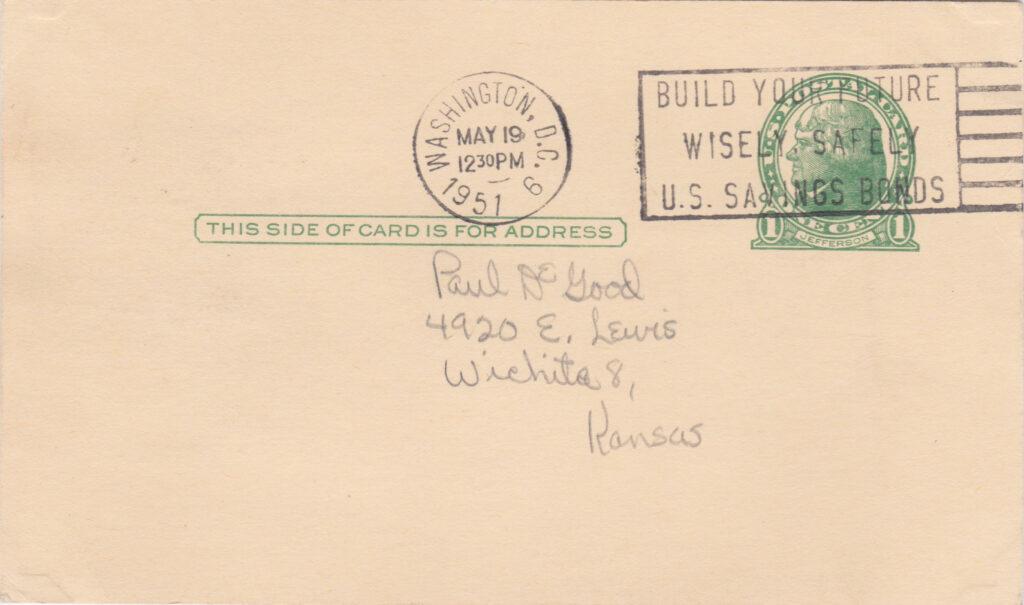 WASHINGTON, D.C.
MAY 19
12 30 PM
1951
6
BUILD YOUR FUTURE
WISELY, SAFELY
U.S. SAVINGS BONDS
1 JEFFERSON 1
THIS SIDE OF CARD IS FOR ADDRESS
Paul Good
4920 E. Lewis
Wichita 8,
Kansas